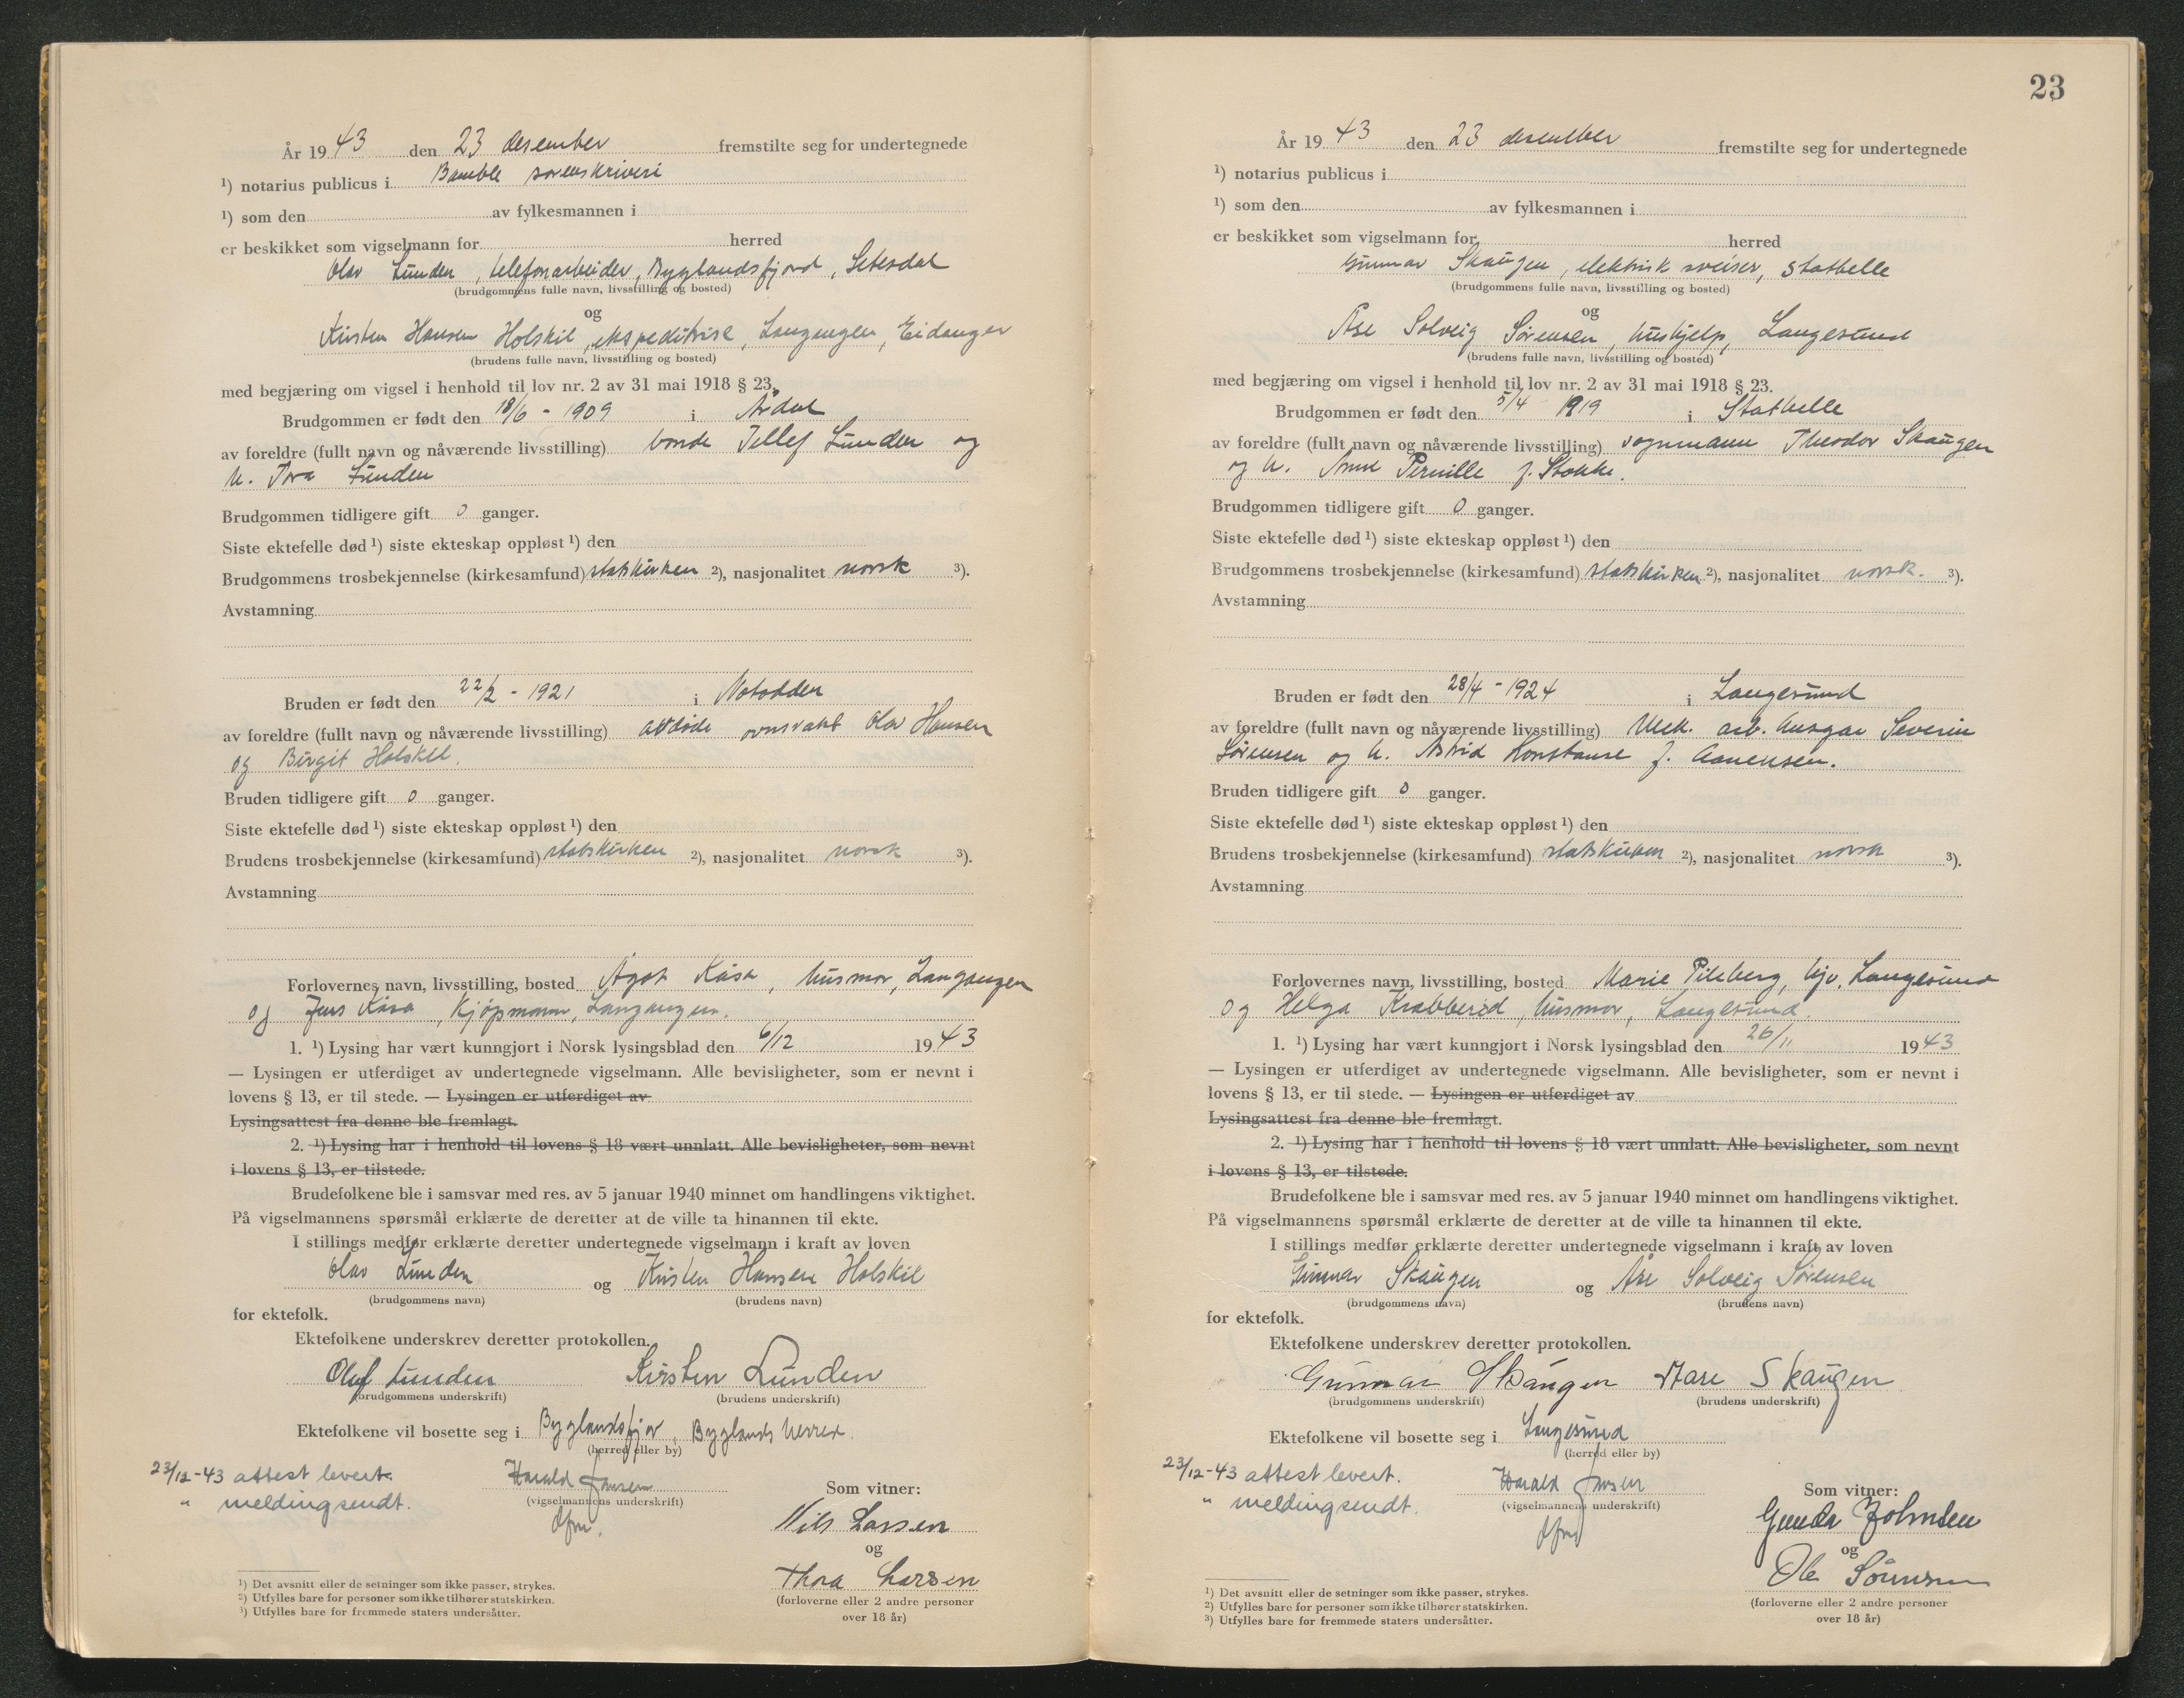 År 1943 den 23 desember fremstilte seg for undertegnede
¹) notarius publicus i Bamble sorenskriveri
¹) som den av fylkesmannen i
er beskikket som vigselmann for herred
Olav Lunden, telefonarbeider, Byglandsfjord, Setesdal
(brudgommens fulle navn, livsstilling og bosted)
og
Kirsten Hansen Holskil, ekspeditrise, Langangen, Eidanger
(brudens fulle navn, livsstilling og bosted)
med begjæring om vigsel i henhold til lov nr. 2 av 31 mai 1918 § 23.
Brudgommen er født den 18/6 - 1909 i Årdal
av foreldre (fullt navn og nåværende livsstilling) bonde Tellef Lunden og
h. Tora Lunden
Brudgommen tidligere gift 0 ganger.
Siste ektefelle død ¹) siste ekteskap oppløst ¹) den
Brudgommens trosbekjennelse (kirkesamfund) statskirken ²), nasjonalitet norsk ³).
Avstamning
Bruden er født den 22/2 - 1921 i Notodden
av foreldre (fullt navn og nåværende livsstilling) avdöde ovnsvakt Olav Hansen
og Birgit Holskil.
Bruden tidligere gift 0 ganger.
Siste ektefelle død ¹) siste ekteskap oppløst ¹) den
Brudens trosbekjennelse (kirkesamfund) statskirken ²), nasjonalitet norsk ³).
Avstamning
Forlovernes navn, livsstilling, bosted Ågot Kåsa, husmor, Langangen
og Jens Kåsa, kjøpmann, Langangen.
1. ¹) Lysing har vært kunngjort i Norsk lysingsblad den 6/12 1943
— Lysingen er utferdiget av undertegnede vigselmann. Alle bevisligheter, som er nevnt i
lovens § 13, er til stede. — Lysingen er utferdiget av
Lysingsattest fra denne ble fremlagt.
2. ¹) Lysing har i henhold til lovens § 18 vært unnlatt. Alle bevisligheter, som nevnt
i lovens § 13, er tilstede.
Brudefolkene ble i samsvar med res. av 5 januar 1940 minnet om handlingens viktighet.
På vigselmannens spørsmål erklærte de deretter at de ville ta hinannen til ekte.
I stillings medfør erklærte deretter undertegnede vigselmann i kraft av loven
Olav Lunden og Kirsten Hansen Holskil
(brudgommens navn) (brudens navn)
for ektefolk.
Ektefolkene underskrev deretter protokollen.
Oluf Lunden Kirsten Lunden
(brudgommens underskrift) (brudens underskrift)
Ektefolkene vil bosette seg i Byglandsfjor, Byglands herred.
(herred eller by)
23/12-43 attest levert. Harald Jansen
" melding sendt. (vigselmannens underskrift) Som vitner:
Nils Larsen
og
Thora Larsen
(forloverne eller 2 andre personer
over 18 år)
¹) Det avsnitt eller de setninger som ikke passer, strykes.
²) Utfylles bare for personer som ikke tilhører statskirken.
³) Utfylles bare for fremmede staters undersåtter.
23
År 1943 den 23 desember fremstilte seg for undertegnede
¹) notarius publicus i
¹) som den av fylkesmannen i
er beskikket som vigselmann for herred
Gunnar Skaugen, elektrisk sveiser, Stathelle
(brudgommens fulle navn, livsstilling og bosted)
og
Åse Solveig Sørensen, hushjelp, Langesund
(brudens fulle navn, livsstilling og bosted)
med begjæring om vigsel i henhold til lov nr. 2 av 31 mai 1918 § 23.
Brudgommen er født den 5/4 1919 i Stathelle
av foreldre (fullt navn og nåværende livsstilling) vognmann Theodor Skaugen
og h. Anne Pernille f. Stokke.
Brudgommen tidligere gift 0 ganger.
Siste ektefelle død ¹) siste ekteskap oppløst ¹) den
Brudgommens trosbekjennelse (kirkesamfund) statskirken ²), nasjonalitet norsk. ³).
Avstamning
Bruden er født den 28/4 - 1924 i Langesund
av foreldre (fullt navn og nåværende livsstilling) Mek. arb. Ansgar Severin
Sørensen og h. Astrid Konstanse f. Aanensen.
Bruden tidligere gift 0 ganger.
Siste ektefelle død ¹) siste ekteskap oppløst ¹) den
Brudens trosbekjennelse (kirkesamfund) statskirken ²), nasjonalitet norsk ³).
Avstamning
Forlovernes navn, livsstilling, bosted Marie Pileberg, hjv, Langesund
og Helga Krabberød, husmor, Langesund.
1. ¹) Lysing har vært kunngjort i Norsk lysingsblad den 26/11 1943
— Lysingen er utferdiget av undertegnede vigselmann. Alle bevisligheter, som er nevnt i
lovens § 13, er til stede. — Lysingen er utferdiget av
Lysingsattest fra denne ble fremlagt.
2. ¹) Lysing har i henhold til lovens § 18 vært unnlatt. Alle bevisligheter, som nevnt
i lovens § 13, er tilstede.
Brudefolkene ble i samsvar med res. av 5 januar 1940 minnet om handlingens viktighet.
På vigselmannens spørsmål erklærte de deretter at de ville ta hinannen til ekte.
I stillings medfør erklærte deretter undertegnede vigselmann i kraft av loven
Gunnar Skaugen og Åse Solveig Sørensen
(brudgommens navn) (brudens navn)
for ektefolk.
Ektefolkene underskrev deretter protokollen.
Gunnar Skaugen Aase Skaugen
(brudgommens underskrift) (brudens underskrift)
Ektefolkene vil bosette seg i Langesund
(herred eller by)
23/12-43 attest levert. Harald Jansen
" melding sendt. (vigselmannens underskrift) Som vitner:
Gunda Johnsen
og
Ole
(forloverne eller 2 andre personer
over 18 år)
¹) Det avsnitt eller de setninger som ikke passer, strykes.
²) Utfylles bare for personer som ikke tilhører statskirken.
³) Utfylles bare for fremmede staters undersåtter.